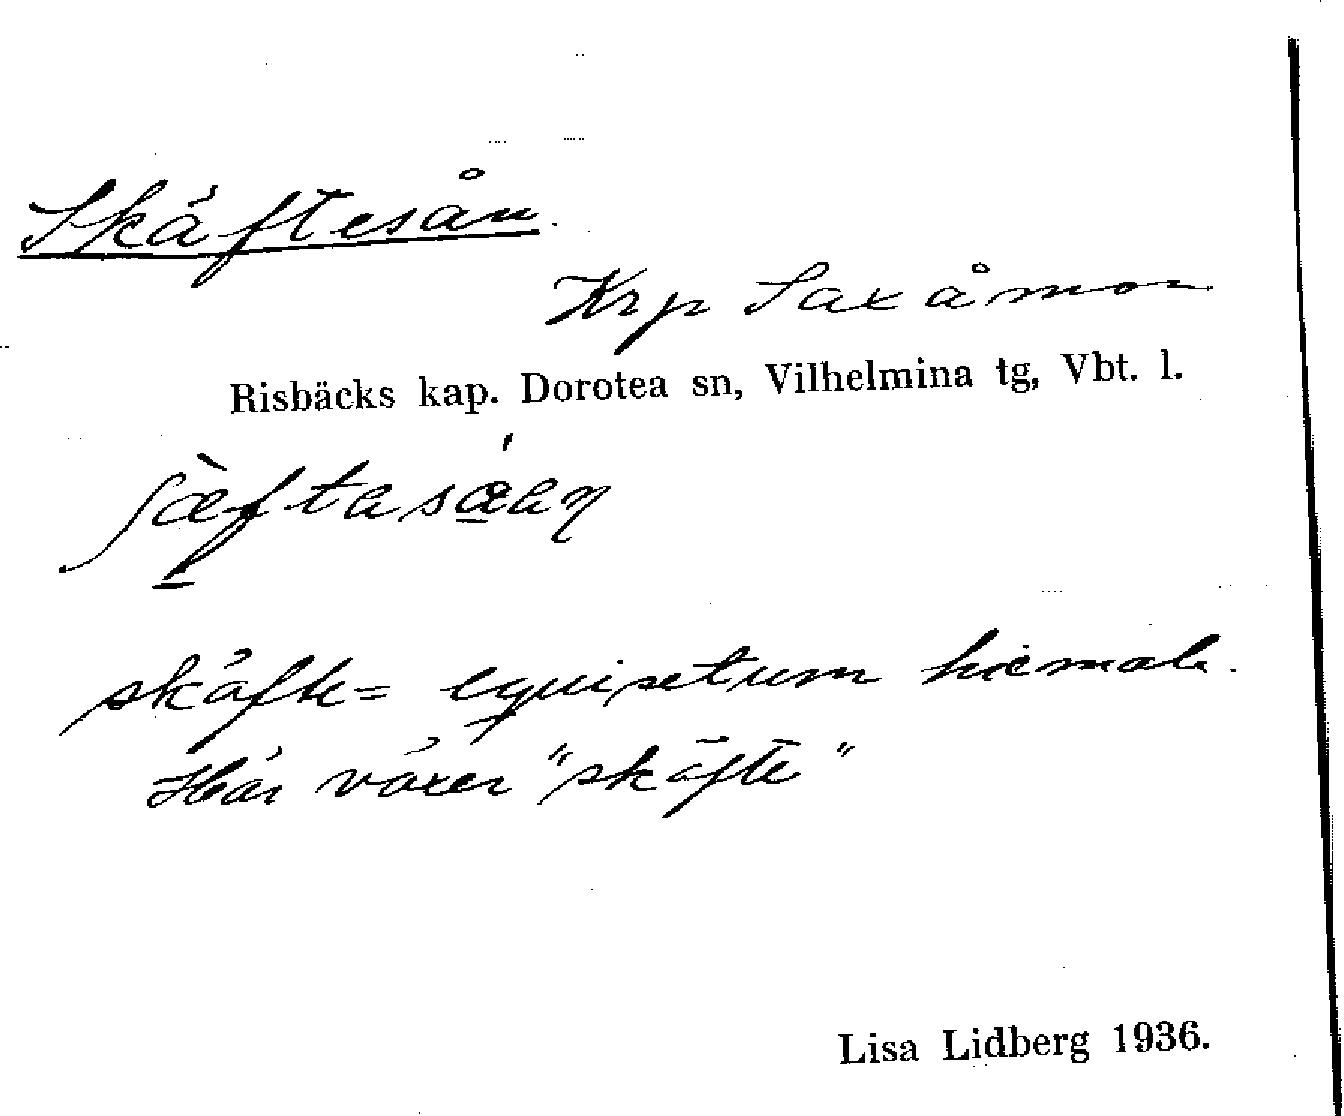 Skäftesån.
Krp Saxåmon
Risbäcks kap. Dorotea sn, Vilhelmina tg, Vbt. l.
skäfte = equisetum hiemale.
Här växer "skäfte"
Lisa Lidberg 1936.